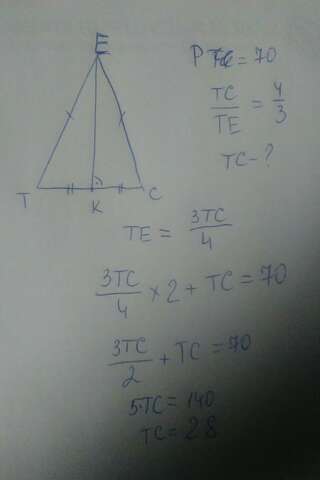 E
T
K
C
P = 70
TC/TE = 4/3
TC - ?
TE = 3TC/4
3TC/4 × 2 + TC = 70
3TC/2 + TC = 70
5TC = 140
TC = 28